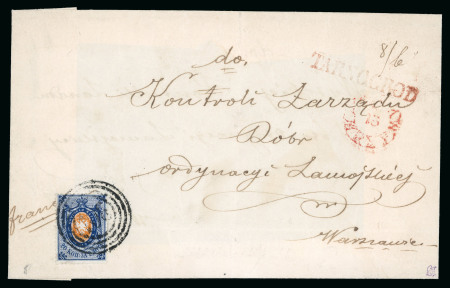 8/6
do.
TARNOGROD
Kontroli Zarządu
15
Dóbr
ordynacyi Zamojskiéj
franco
Warszawie